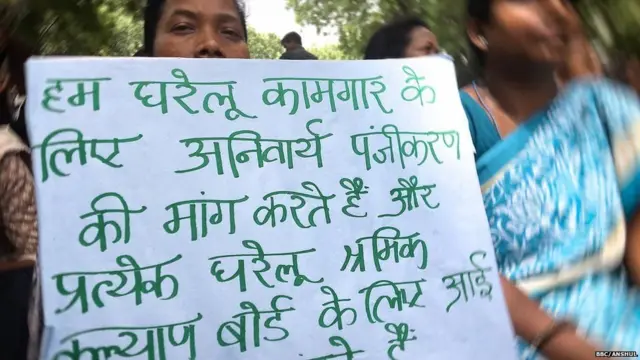 हम घरेलू कामगार के
लिए अनिवार्य पंजीकरण
की मांग करते हैं और
प्रत्येक घरेलू श्रमिक
कल्याण बोर्ड के लिए आई
हैं
BBC/ANSHUL